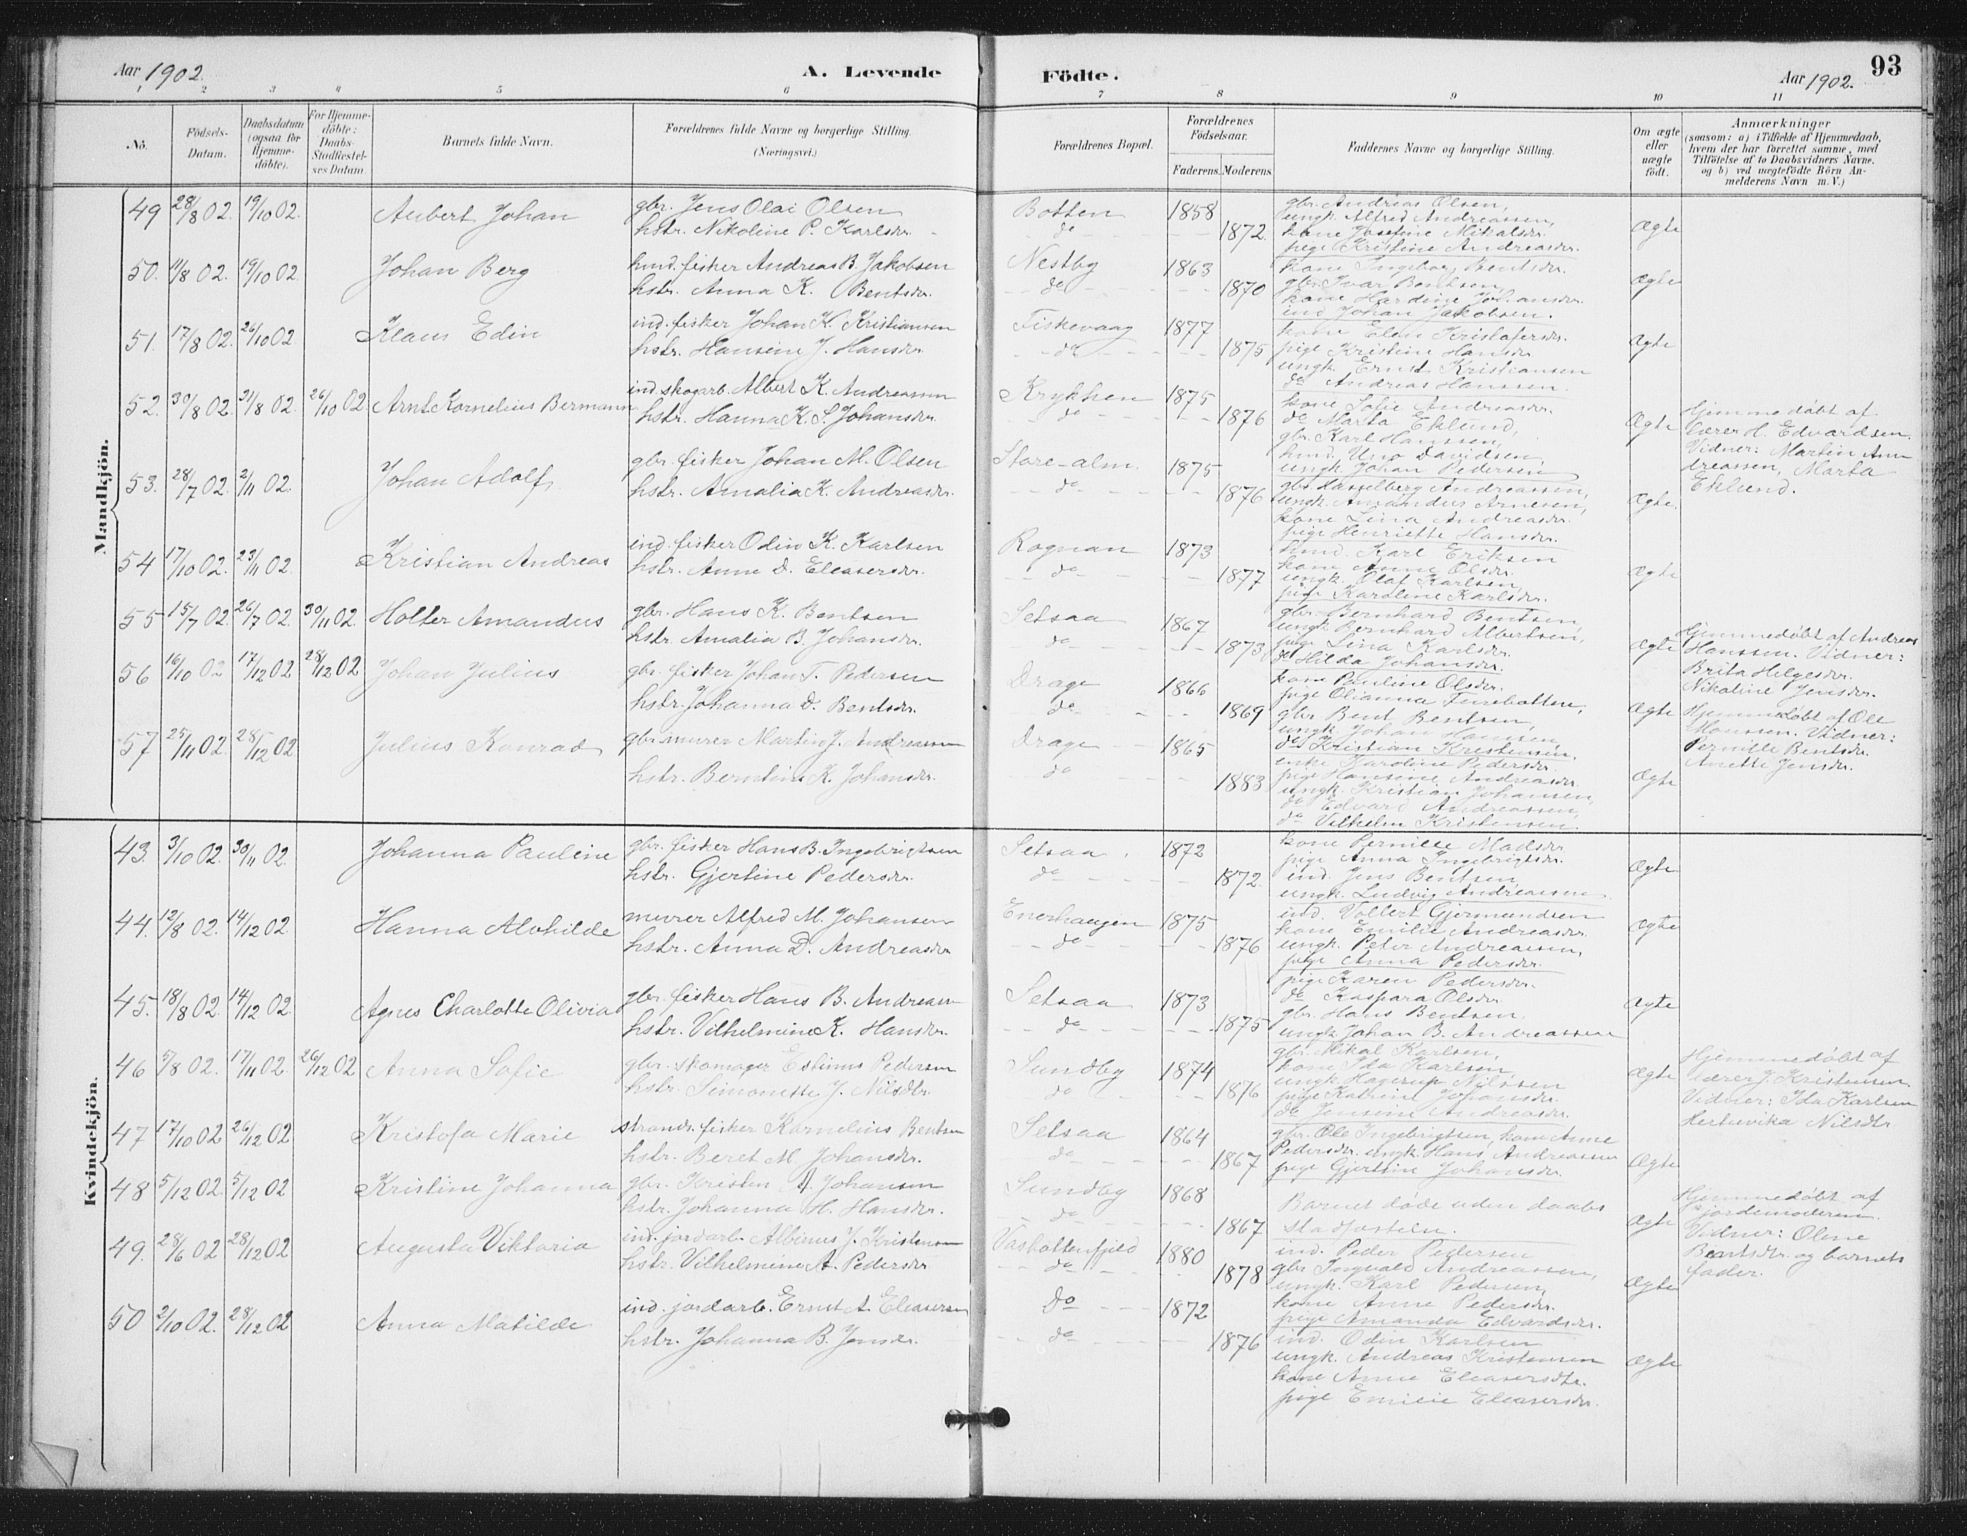 Aar 1902.
A. Levende
Födte.
Aar 1902.
93
1 2 3 4 5 6 7 8 9 10 11
No.
Födsels-Datum.
Daabsdatum (ogsaa for Hjemmedöbte).
For Hjemmedöbte: Daabs-Stadfæstelses Datum
Barnets fulde Navn.
Forældrenes fulde Navne og borgerlige Stilling.
(Næringsvei.)
Forældrenes Bopæl.
Forældrenes Födselsaar.
Faderens. Moderens.
Faddernes Navne og borgerlige Stilling.
Om ægte eller uægte födt.
Anmærkninger
(saasom: a) i Tilfælde af Hjemmedaab, hvem der har forrettet samme, med Tilföielse af to Daabsvidners Navne, og b) ved uægtefödte Börn Anmelderens Navn m. V.)
Mandkjön.
49 28/8 02. 19/10 02. Aubert Johan gbr. Jens Olai Olsen Botten 1858 gbr. Andreas Olsen,
ungk. Alfred Andreassen,
hstr. Nikoline P. Karlsdr. do 1872. kone Josefine Mikalsdr. Ægte
pige Kristine Andreasdr.
50. 11/8 02. 19/10 02. Johan Berg husd. fisker Andreas B. Jakobsen Nestby 1863 kone Ingeborg Bentsdr.
hstr. Anna K. Bentsdr. do 1870 gbr. Ivar Bentsen, Ægte
kone Hardine Johansdr.
ind. Johan Jakobsen.
51. 17/8 02. 26/10 02 Klaus Edin ind. fisker Johan K. Kristiansen Fiskevaag 1877 kone Elen Kristofersdr.
hstr. Hansine J. Hansdr. do 1875 pige Kristine Hansdr. Ægte
ungk. Ernst Kristiansen
do Andreas Hanssen.
52. 30/8 02. 31/8 02. 26/10 02 Arnt Kornelius Bermann ind. skogarb. Albert K. Andreassen Krykhen 1875 kone Sofie Andreasdr.
hstr. Hanna K. S. Johansdr. do 1876 do Marta Eklund, Ægte
gbr. Karl Hanssen,
husd. Uno Davidsen,
ungk. Johan Pedersen
Hjemmedöbt af
lærer H. Edvardsen.
Vidner: Martin Andreassen, Marta
Eklund.
53. 28/7 02. 2/11 02. Johan Adolf gbr. fisker Johan M. Olsen Store-alm. 1875
hstr. Amalia K. Andreasdr. do 1876 gbr. Hasselberg Andreassen, Ægte
ungk. Amandus Arnesen,
kone Lina Andreasdr.
pige Henriette Hansdr.
54 17/10 02. 23/11 02. Kristian Andreas ind. fisker Odin K. Karlsen Rognan 1873 husd. Karl Eriksen
hstr. Anne D. Eleasersdr. do 1877 kone Anne Olsdr. Ægte
ungk. Olaf Karlsen
pige Karoline Karlsdr.
55 15/7 02. 26/7 02 30/11 02. Holter Amandus gbr. Hans K. Bentsen Setsaa 1867 gbr. Bernhard Bentsen,
hstr. Amalia B. Johansdr. do 1873 ungk. Bernhard Albertsen, Ægte
pige Lina Karlsdr.
do Hilda Johansdr.
Hjemmedöbt af Andreas
Hanssen. Vidner:
Brita Helgesdr.
Nikoline Jensdr.
56 16/10 02 17/12 02 28/12 02 Johan Julius gbr. fisker Johan T. Pedersen Drage 1866 kone Pauline Olsdr.
hstr. Johanna D. Bentsdr. do 1869 pige Olianna Furebotten, Ægte
gbr. Bent Bentsen,
ungk. Johan Hansen,
do Kristian Kristensen.
Hjemmedöbt af Ole
Monssen. Vidner:
Pernille Bentsdr.
Anette Jensdr.
57 25/11 02. 28/12 02 Julius Konrad gbr. murer Martin J. Andreassen Drage 1865 enke Karoline Pedersdr.
hstr. Berntine K. Johansdr. do 1883 pige Hansine Andreasdr. Ægte
ungk. Kristian Johansen,
do Edvard Andreassen,
do Vilhelm Kristensen
Kvindekjön.
43. 3/10 02. 30/11 02. Johanna Pauline gbr. fisker Hans B. Ingebrigtsen Setsaa 1872 kone Pernille Madsdr.
hstr. Gjertine Pedersdr. do 1872. pige Anna Ingebrigtsdr. Ægte
ind. Jens Bentsen
ungk. Ludvig Andreassen
44. 12/8 02. 14/12 02 Hanna Alvhilde murer Alfred M. Johansen Enerhaugen 1875 ind. Vollert Gjermundsen
hstr. Anna D. Andreasdr. do 1876 kone Emilie Andreasdr. Ægte
ungk. Peter Andreassen,
pige Anna Pedersdr.
45. 18/8 02. 14/12 02. Agnes Charlotte Olivia gbr. fisker Hans B. Andreassen Setsaa 1873 pige Karen Pedersdr.
hstr. Vilhelmine K. Hansdr. do 1875 do Kaspara Olsdr. Ægte
gbr. Hans Bentsen.
ungk. Johan B. Andreassen
46 5/8 02. 17/11 02 26/12 02 Anna Sofie gbr. skomager Estinus Pedersen Sundby 1874 gbr. Mikal Karlsen,
hstr. Simonette J. Nilsdtr. do 1876 kone Ida Karlsen, Ægte
ungk. Hagerup Nilssen
pige Katrine Johansdr.
do Jensine Andreasdr.
Hjemmedöbt af
lærer J. Kristensen.
Vidner: Ida Karlsen
Hertuvika Nilsdtr
47 17/10 02 26/12 02 Kristofa Marie strands. fisker Kornelius Bentsen Setsaa 1864 gbr. Ole Ingebrigtsen, kone Anne
hstr. Beret M. Johansdr. do 1867 Pedersdr. ungk. Hans Andreassen Ægte
pige Gjertine Johansdr.
48 5/12 02. 5/12 02 Kristine Johanna gbr. Kristen A. Johansen Sundby 1868 Barnet döde uden daabs
hstr. Johanna H. Hansdr. do 1867 stadfæstelse. Ægte
Hjemmedöbt af
jordemoderen.
Vidner: Oline
Bentsdtr. og barnets
fader.
49. 28/6 02 28/12 02 Augusta Viktoria ind. jordarb. Albinus J. Kristensen Vasbottenfjeld 1880 ind. Peder Pedersen
hstr. Vilhelmine A. Pedersdr do 1878 gbr. Ingvald Andreassen, Ægte
ungk. Karl Pedersen,
kone Anne Pedersdr.
pige Amanda Edvardsdr.
50 2/10 02. 28/12 02 Anna Matilde ind. jordarb. Ernst A. Eleasersen Do 1872
hstr. Johanna B. Jensdr. do 1876 ind. Odin Karlsen Ægte
ungk. Andreas Kristensen
kone Anne Eleasersdtr.
pige Emilie Eleasersdr.